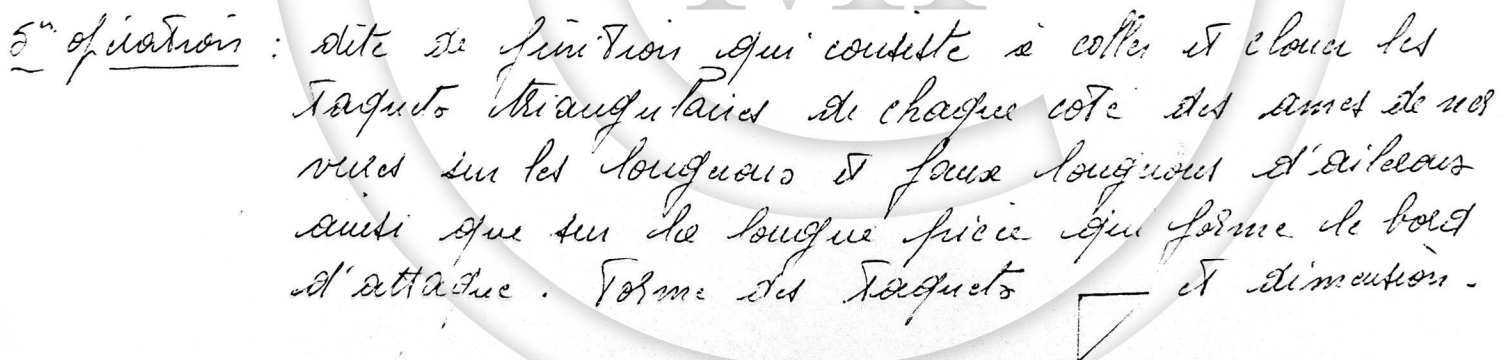 5ᵐ opération : dite de finition qui consiste à coller et clouer les
taquets triangulaires de chaque coté des ames de ner
vures sur les longerons et faux longerons d'ailerons
ainsi que sur la longue pièce qui forme le bord
d'attaque. Forme des taquets et dimension.